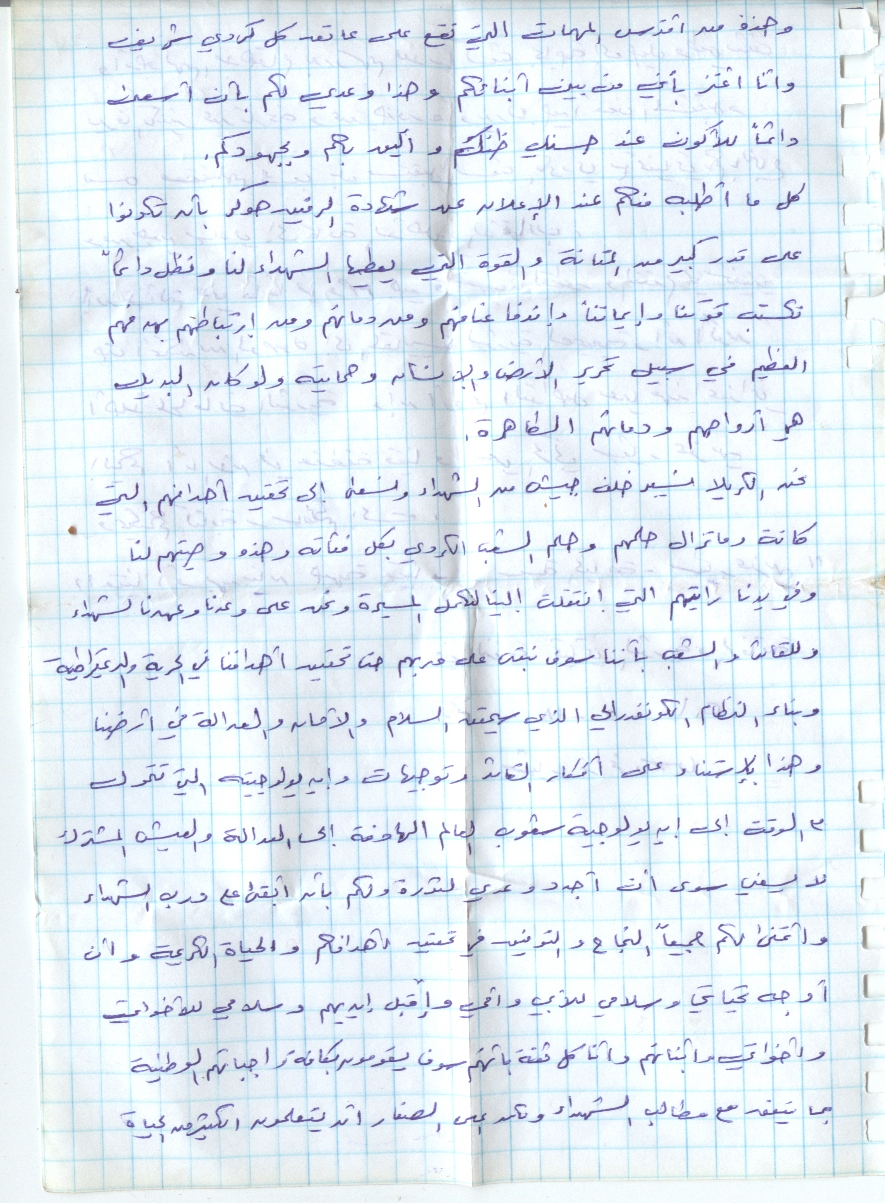 وهذه من أقدس المهمات التي تقع على عاتق كل كردي شريف
وأنا اعتز بأني من بين أبنائكم وهذا وعدي لكم بأن أسعى
دائماً للأكون عند حسن ظنكم و أليق بكم وبجهودكم.
كل ما أطلبه منكم عند الإعلان عن شهادة الرفيق هوكر بأن تكونوا
على قدر كبير من المتانة والقوة التي يعطيها الشهداء لنا ونظل دائماً
نكتسب قوتنا وإيماننا وإندفاعنا منهم ومن دمائهم ومن إرتباطهم بهدفهم
العظيم في سبيل تحرير الأرض والإنسان وحمايته ولو كان البديل
هو أرواحهم ودمائهم الطاهرة.
نحن الكريلا نسير خلف جيش من الشهداء ونسعى إلى تحقيق أهدافهم التي
كانة وماتزال حلمهم وحلم الشعب الكردي بكل فئاته وهذه وصيتهم لنا
وفي يدنا رايتهم التي إنتقلت إلينا لنكمل المسيرة ونحن على وعدنا وعهدنا لشهداء
وللقائد والشعب بأننا سوف نبقى على دربهم حتا تحقيق أهدافنا في الحرية والديمقراطية
وبناء النظام الكونفدرالي الذي سيحقق السلام والأمان والعدالة في أرضنا
وهذا بالإستناد على أفكار القائد وتوجيهات وإيديولوجيته التي تتحول
مع الوقت إلى إيديولوجية شعوب العالم الهادفة إلى العدالة والعيش المشترك
لا يسعني سوى أن أجدد وعدي لثورة ولكم بأن أبقى على درب الشهداء
وأتمنى لكم جميعاً النجاح و التوفيق في تحقيق أهدافكم والحياة الكريمة وأن
أوجه تحياتي وسلامي للأبي وأمي وأقبل إيديهم وسلامي للأخواتي
وأخواتي وأبنائهم وأنا كل ثقة بأنهم سوف يقومون بكافة واجباتهم الوطنية
بما يتفق مع مطالب الشهداء ونحن على الصغار أن يتعلمون الكثير من الحياة